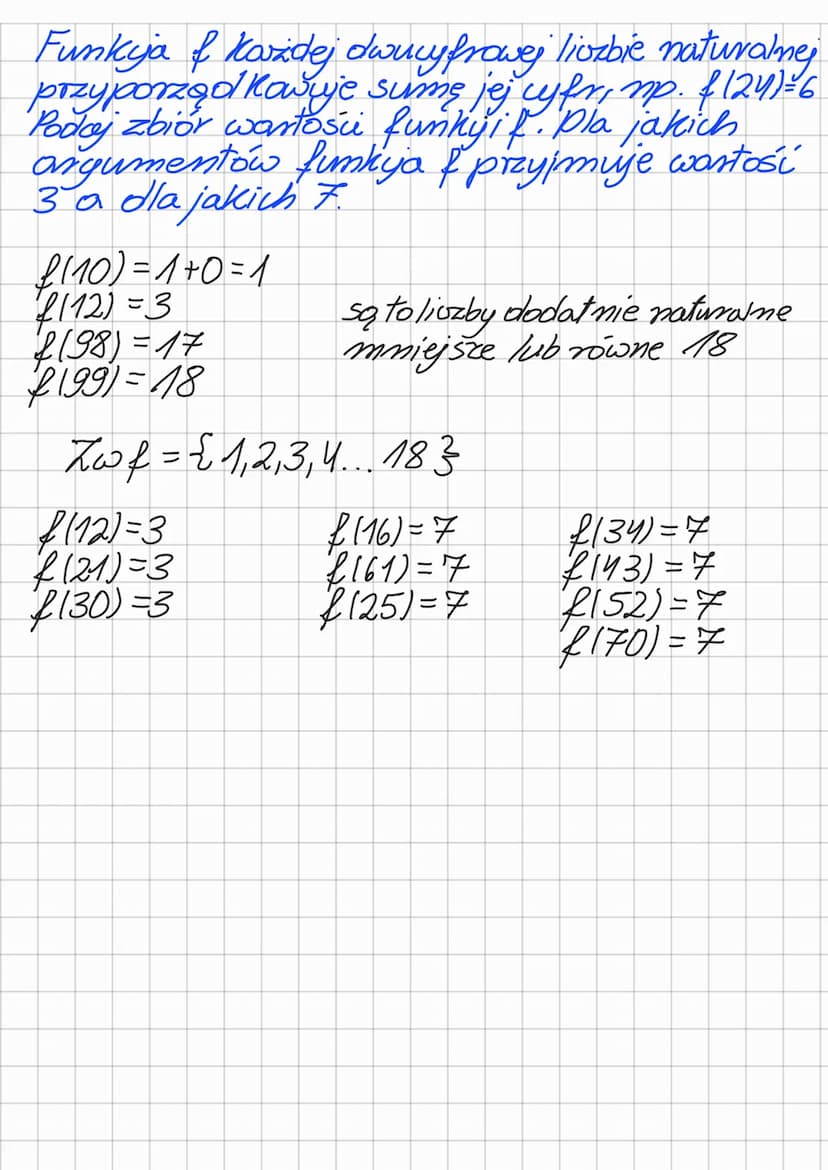 Funkcja f każdej dwucyfrowej liczbie naturalnej
przyporządkowuje sumę jej cyfr, np. f(24)=6
Podaj zbiór wartości funkcji f. Dla jakich
argumentów funkcja f przyjmuje wartość
3 a dla jakich 7.
f(10)=1+0=1
f(12)=3
f(98)=17
f(99)=18
są to liczby dodatnie naturalne
mniejsze lub równe 18
Zwf={1,2,3,4...18}
f(12)=3
f(21)=3
f(30)=3
f(16)=7
f(61)=7
f(25)=7
f(34)=7
f(43)=7
f(52)=7
f(70)=7